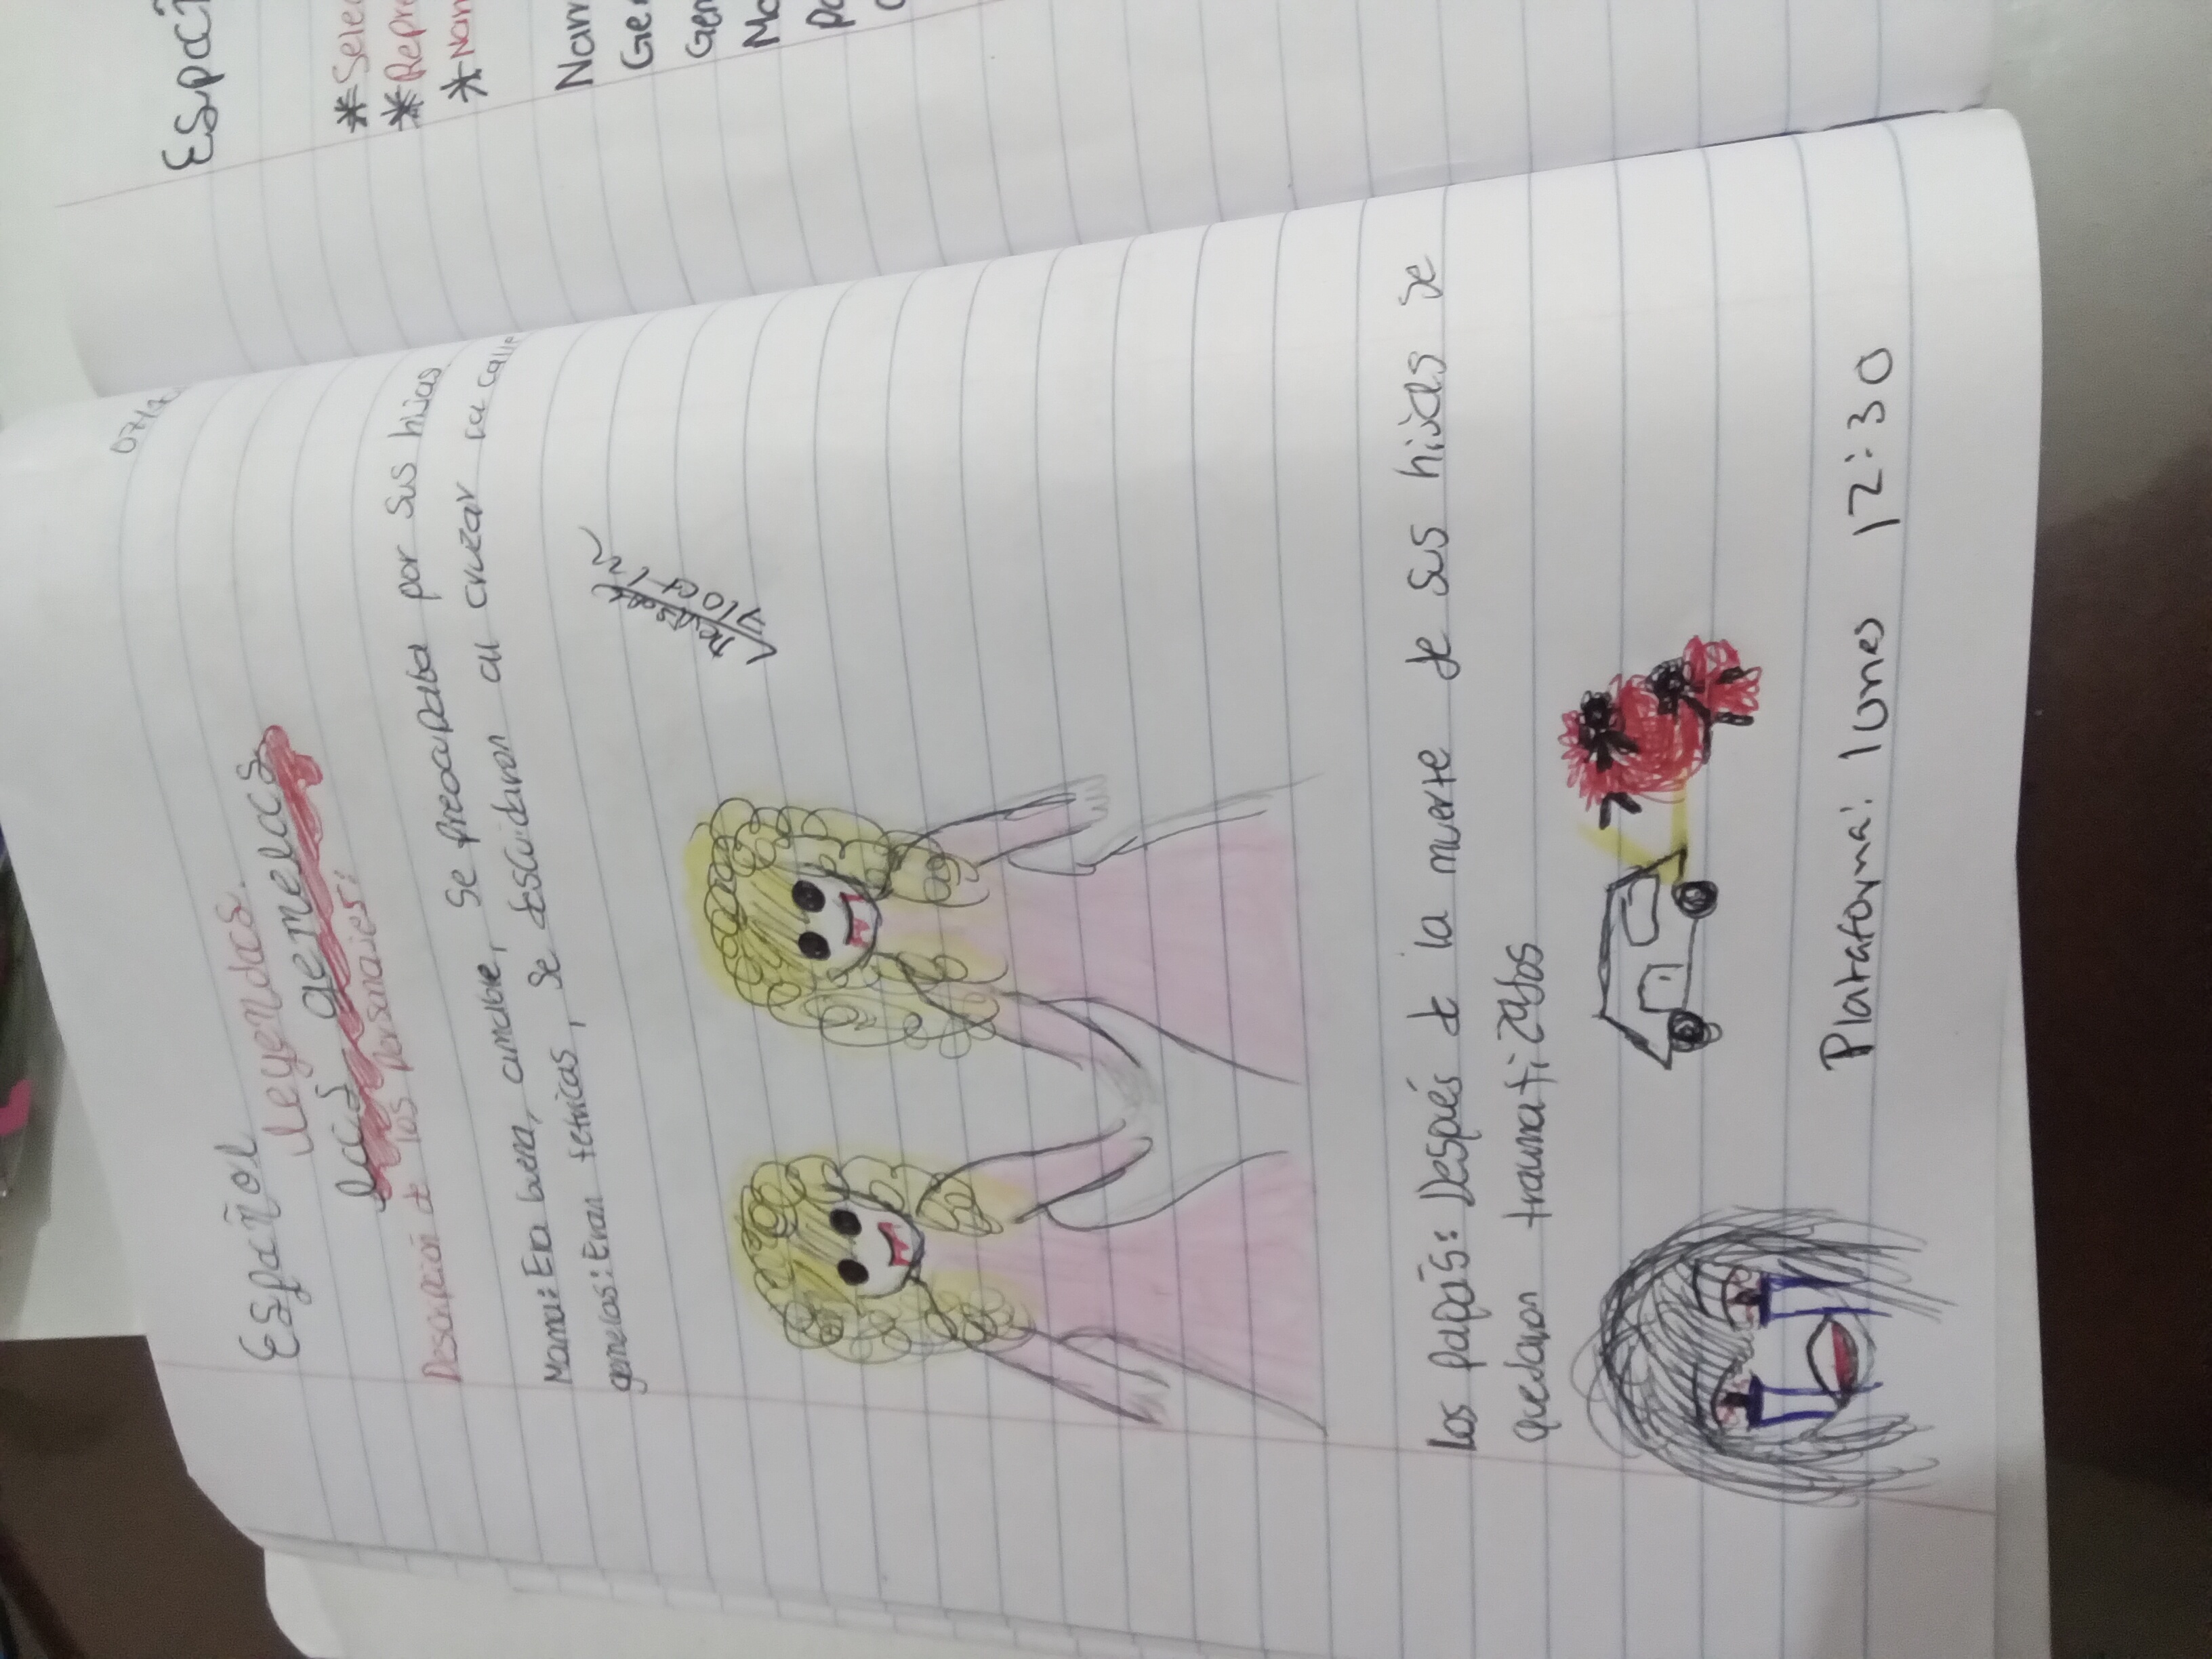 Español
Leyendas.
Las gemelas
Descripción de los personajes:
Mama: Era buena, amable, se preocupaba por sus hijas
gemelas: Eran tetricas, se descuidaron al cruzar la calle
Los papás: Después de la muerte de sus hijas se
quedaron traumatizados
Plataforma: lunes 12:30
Españ
*Sele
*Repre
*Nar
Narr
Ge
Gem
Ma
Pa